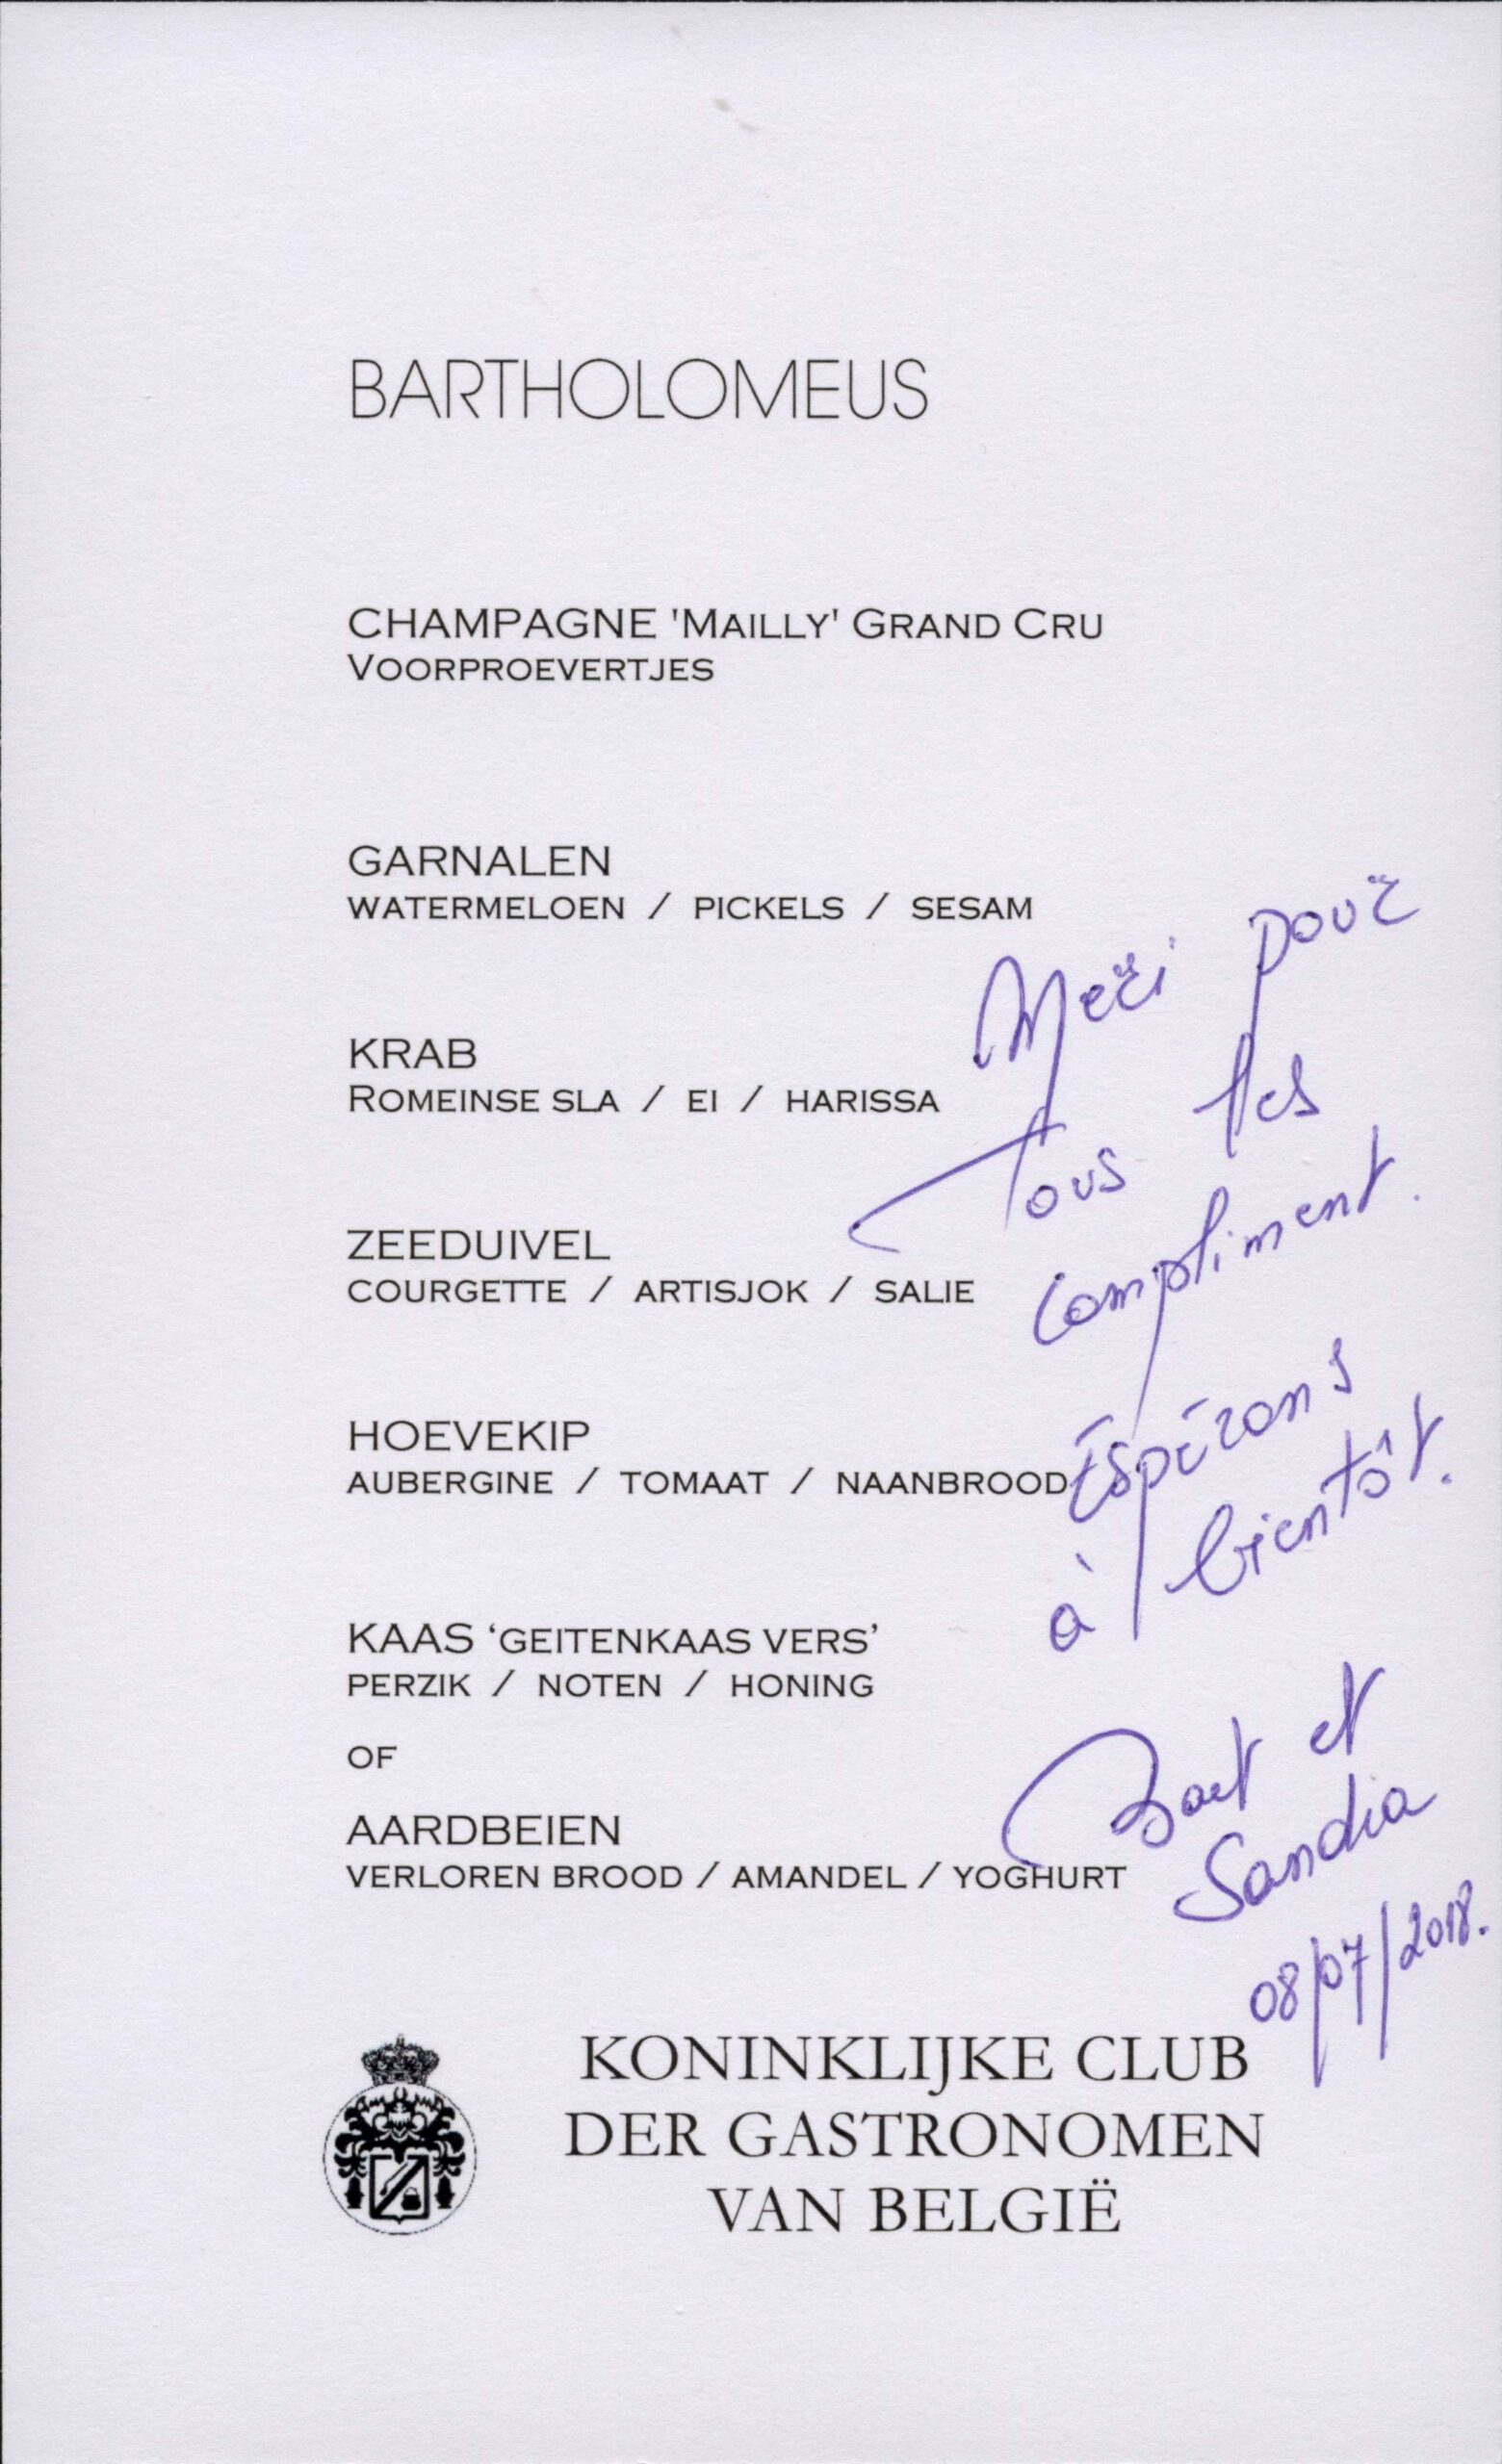 BARTHOLOMEUS
CHAMPAGNE 'MAILLY' GRAND CRU
VOORPROEVERTJES
GARNALEN
WATERMELOEN / PICKELS / SESAM
KRAB
ROMEINSE SLA / EI / HARISSA
ZEEDUIVEL
COURGETTE / ARTISJOK / SALIE
HOEVEKIP
AUBERGINE / TOMAAT / NAANBROOD
KAAS ‘GEITENKAAS VERS’
PERZIK / NOTEN / HONING
OF
AARDBEIEN
VERLOREN BROOD / AMANDEL / YOGHURT
Merci pour
Tous les
compliment.
Espérons
à bientôt.
Bart et
Sandra
08/07/2018.
KONINKLIJKE CLUB
DER GASTRONOMEN
VAN BELGIË